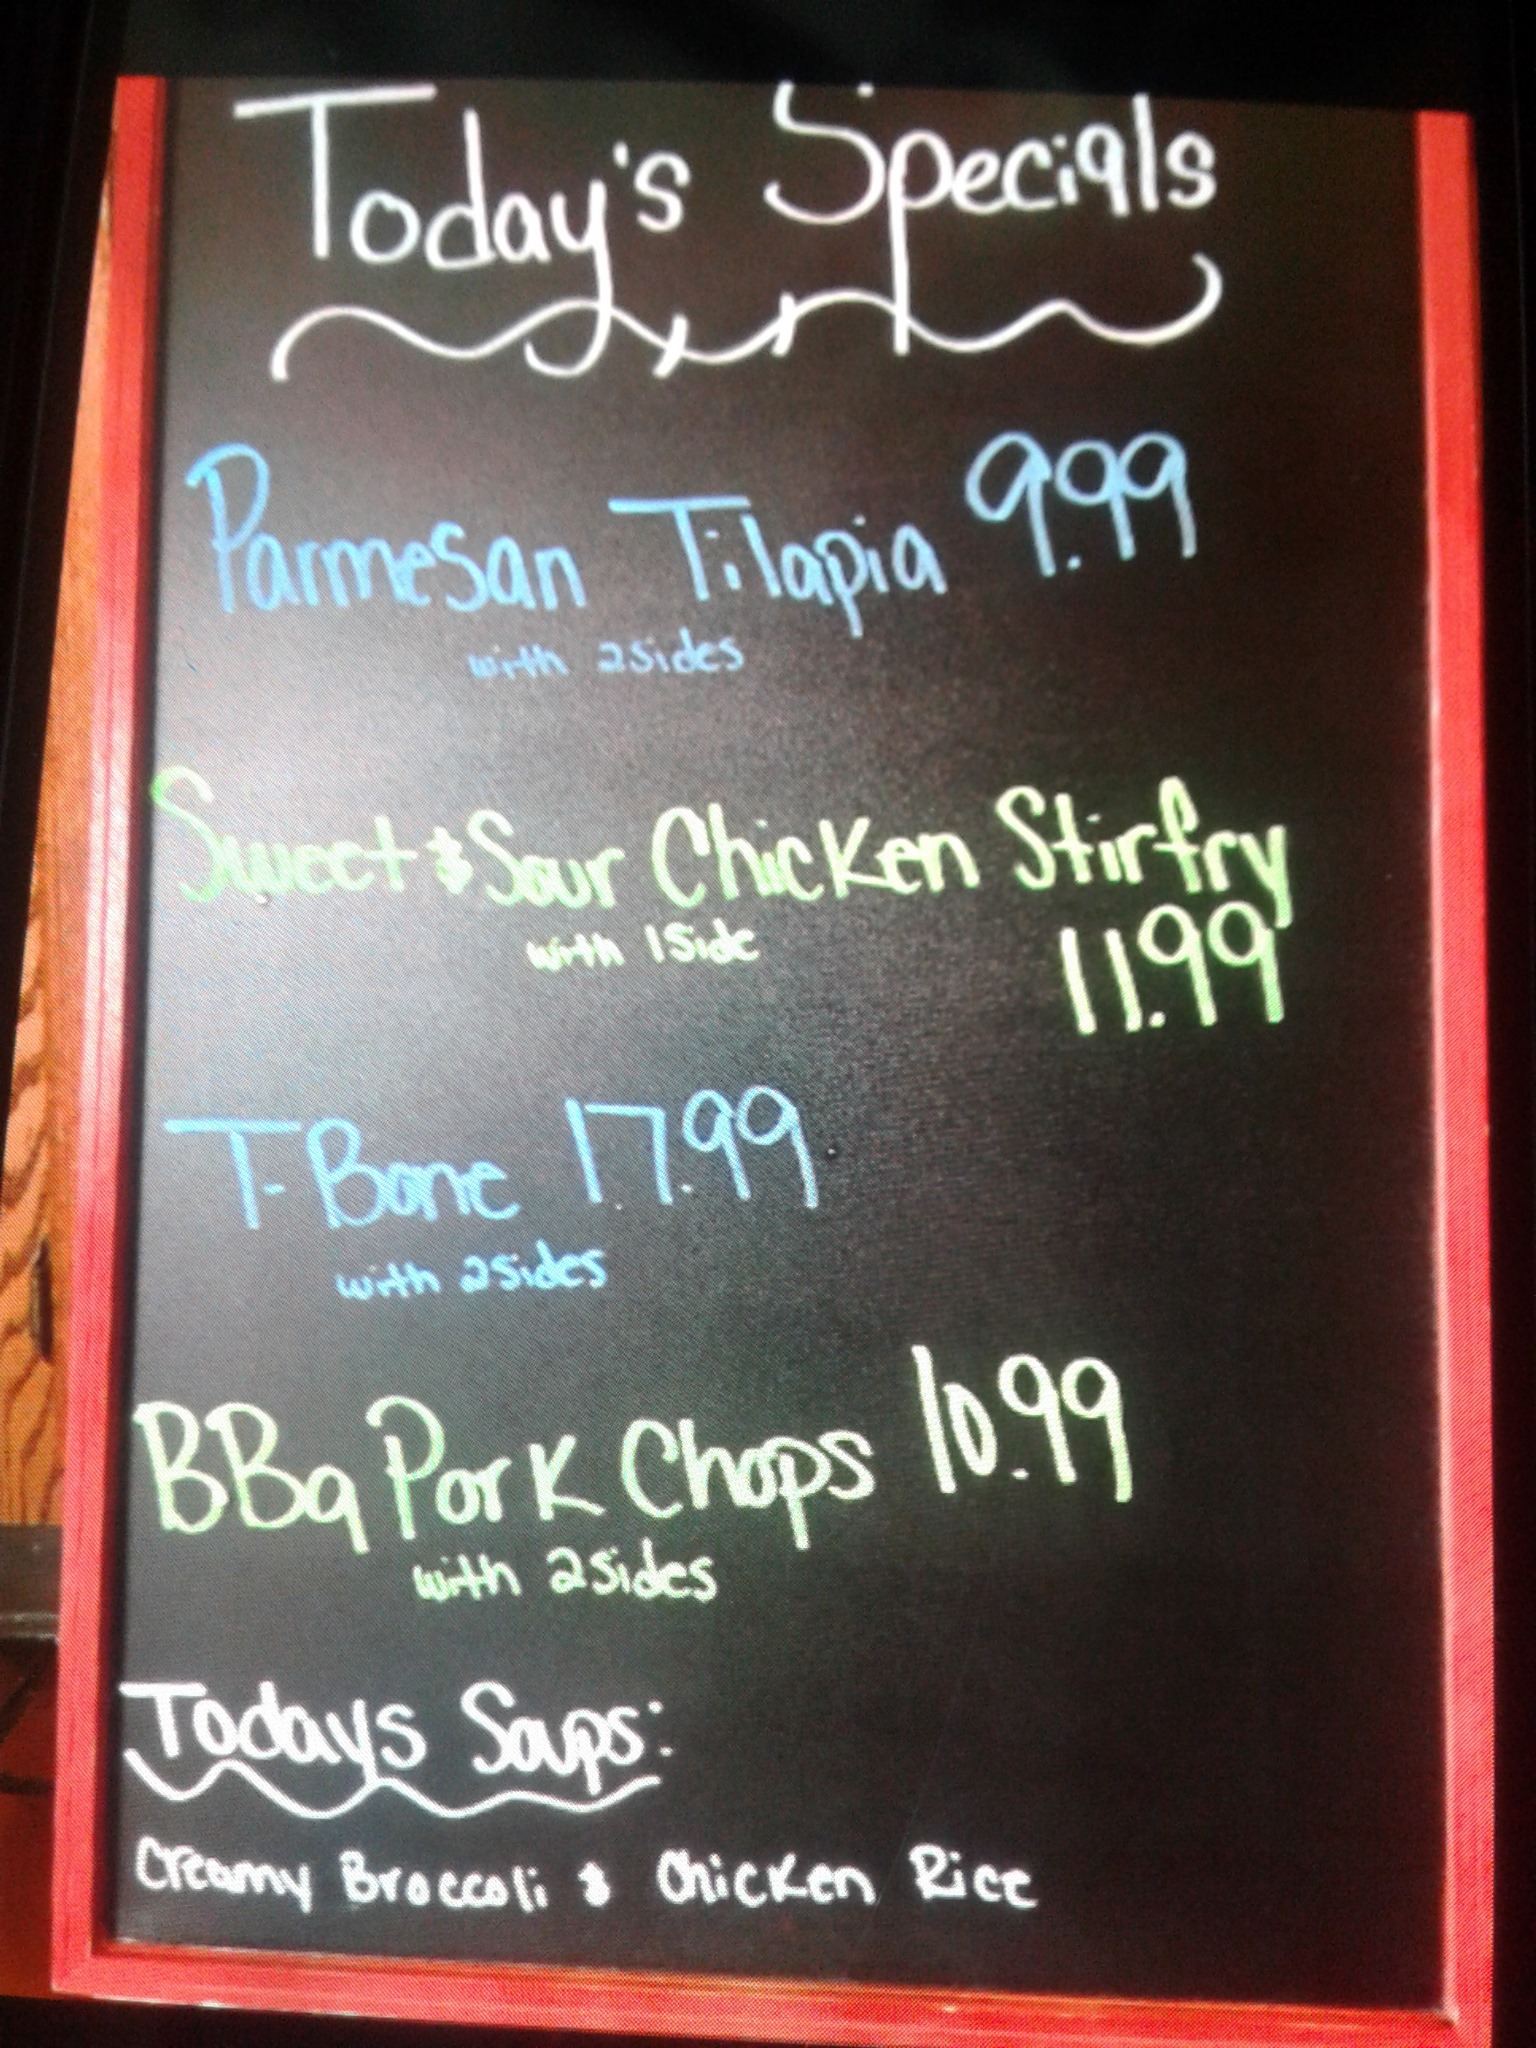 Today's Specials
Parmesan Tilapia 9.99
with 2 sides
Sweet & Sour Chicken Stirfry
with 1 Side 11.99
T-Bone 17.99
with 2 Sides
BBq Pork Chops 10.99
with 2 Sides
Todays Soups:
Creamy Broccoli & Chicken Rice